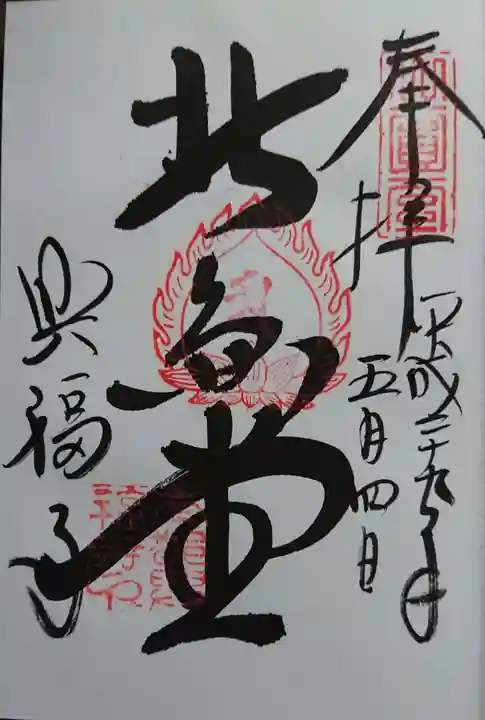 奉拝
平成二十九年
五月四日
北円堂
興福寺